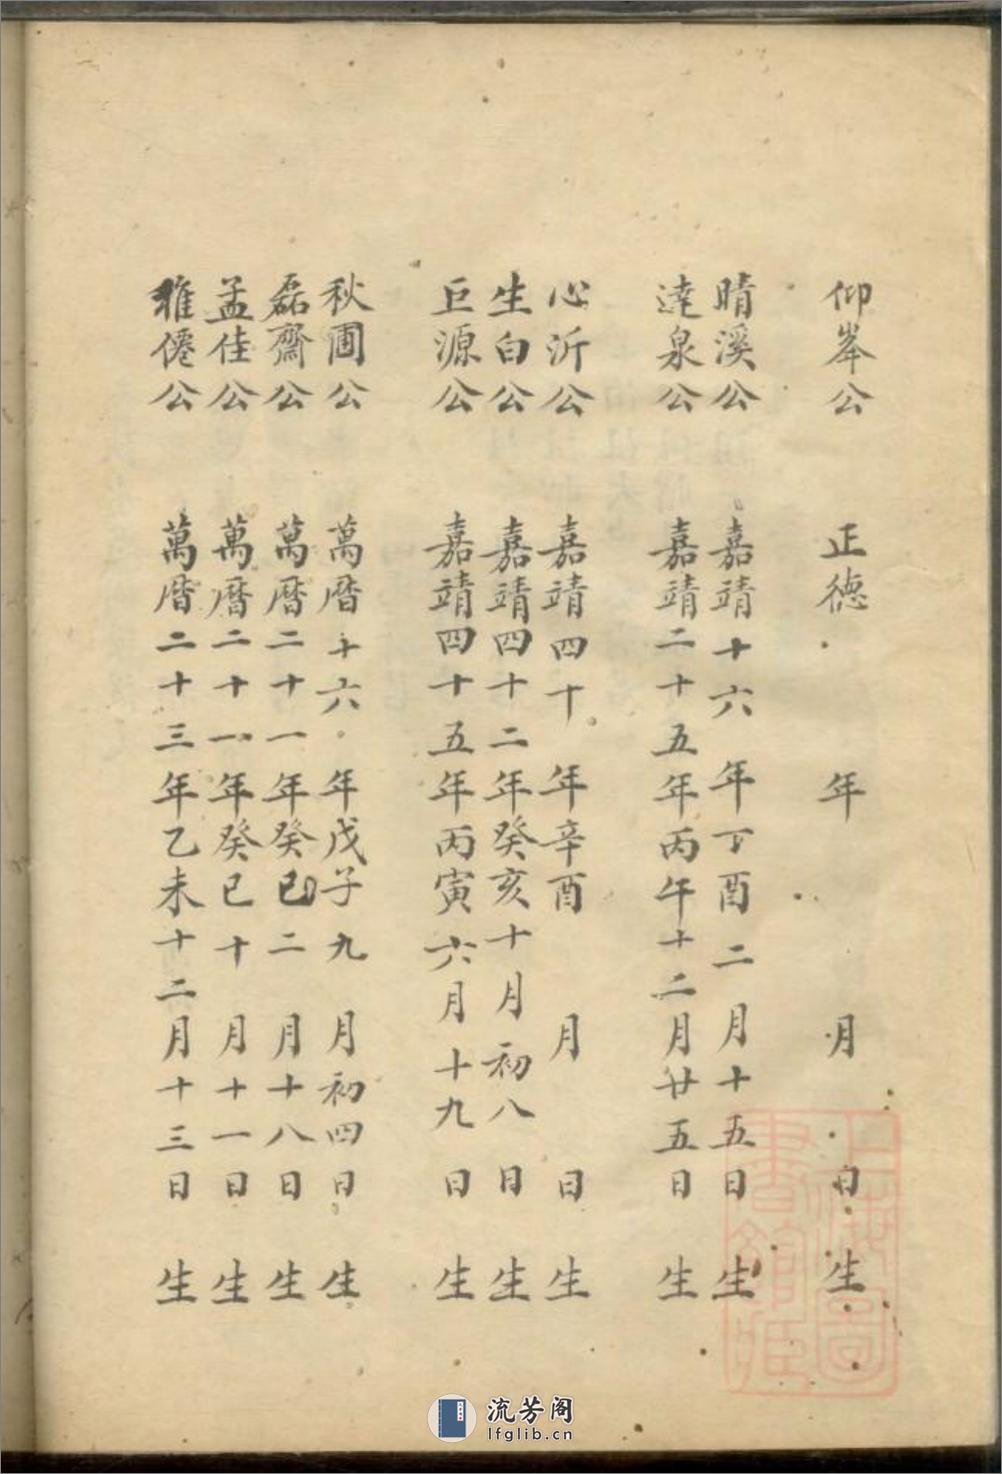 仰峯公 正德 年 月 日 生
晴溪公 嘉靖十六 年丁酉二月十五日 生
達泉公 嘉靖二十五年丙午十二月廿五日 生
心沂公 嘉靖四十 年辛酉 月 日 生
生白公 嘉靖四十二年癸亥十月初八日 生
巨源公 嘉靖四十五年丙寅六月十九日 生
秋圃公 萬曆十六 年戊子九月初四日 生
磊齋公 萬曆二十一年癸巳二月十八日 生
孟佳公 萬曆二十一年癸巳十月十一日 生
雅僊公 萬曆二十三年乙未十二月十三日 生
上海圖
書館藏
流芳阁
lfglib.cn